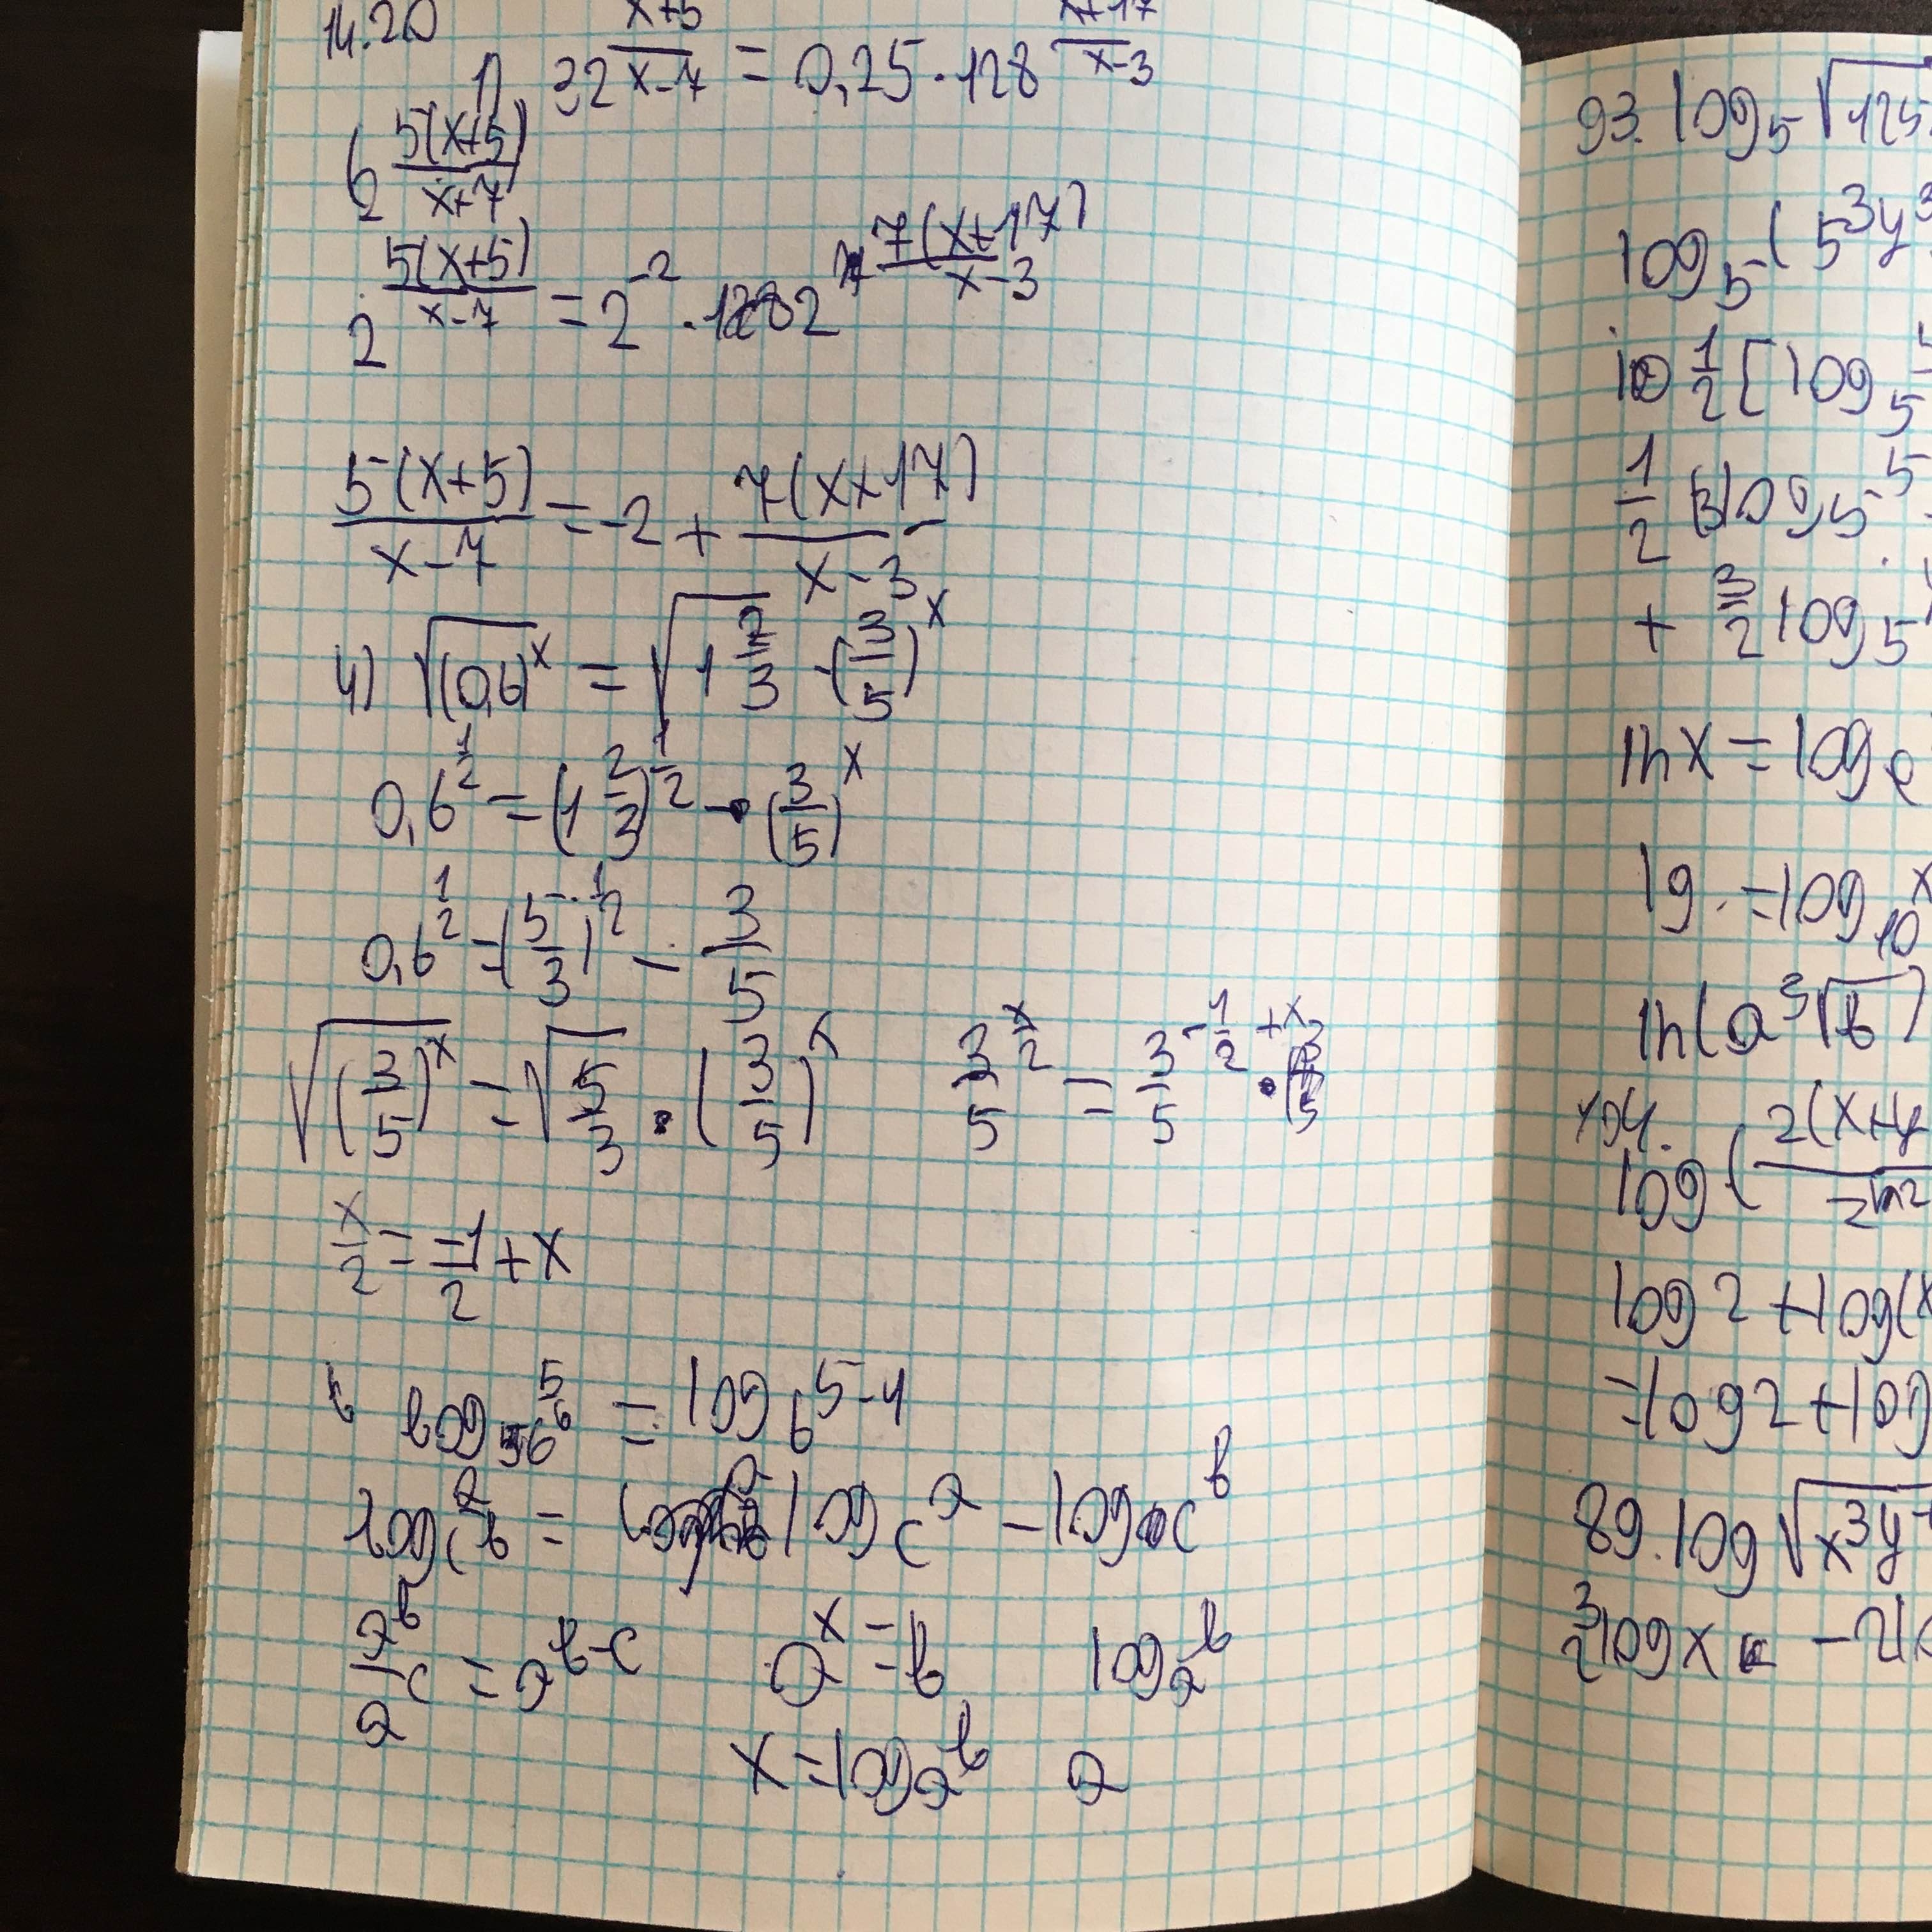 14.20
1) 32^((x+5)/(x-7)) = 0,25 · 128^((x+17)/(x-3))
2^(5(x+5)/(x+7))
2^(5(x+5)/(x-7)) = 2^(-2) · 2^(7(x+17)/(x-3))
5(x+5)/(x-7) = -2 + 7(x+17)/(x-3)
4) √(0,6)^x = √(1 2/3) · (3/5)^x
0,6^(1/2) = (1 2/3)^(1/2) - (3/5)^x
0,6^(1/2) = (5/3)^(1/2) - 3/5
√(3/5)^x = √(5/3) · (3/5)^x    3/5^(x/2) = 3/5^(-1/2 + x)
x/2 = -1/2 + x
log 5/6 = log_6 5 - 1
log_c a/b = log_c a - log_c b
a^b/a^c = a^(b-c)    a^x = b    log_a b
x = log_a b    a
93. log_5 √125
log_5 (5^3 y^3
1/2 [log_5 5
1/2 (3 log_5 5
+ 3/2 log_5
ln x = log_e
lg = log_10 x
ln(a^3 √b)
log (2(x+y
log 2 + log(x
= log 2 + log
89. log √x^3 y
3/2 log x - 2